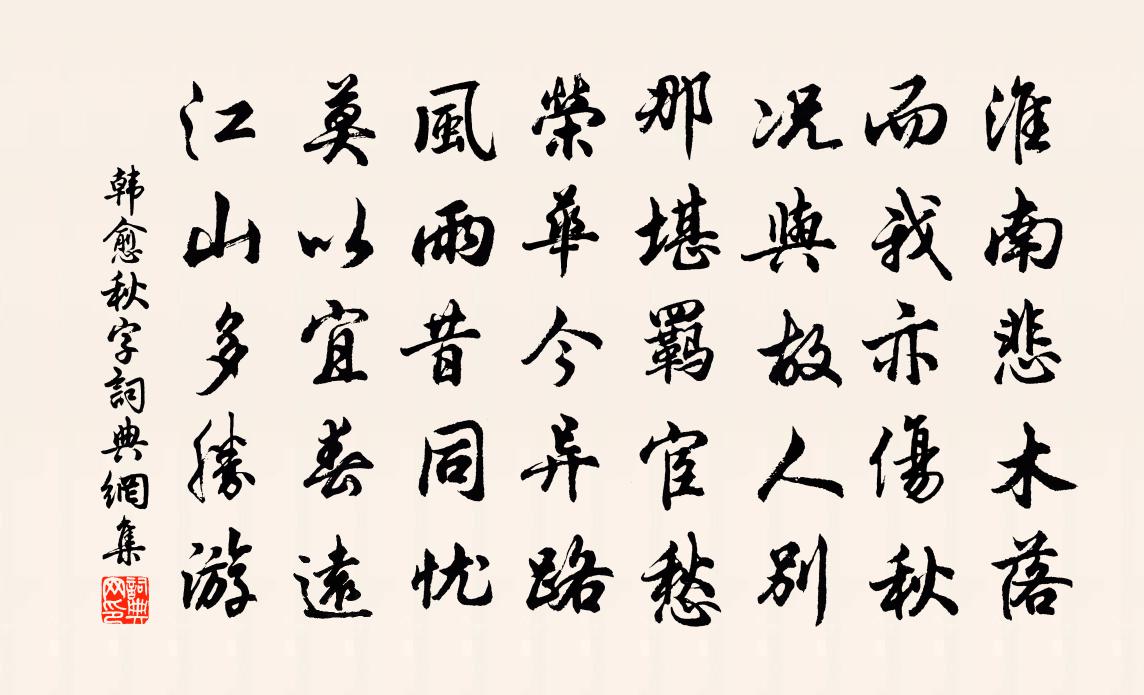 淮南悲木落
而我亦傷秋
况與故人别
那堪羁宦愁
榮華今异路
風雨昔同忧
莫以宜春遠
江山多勝游
韩愈秋字詞典網集
詞典网印